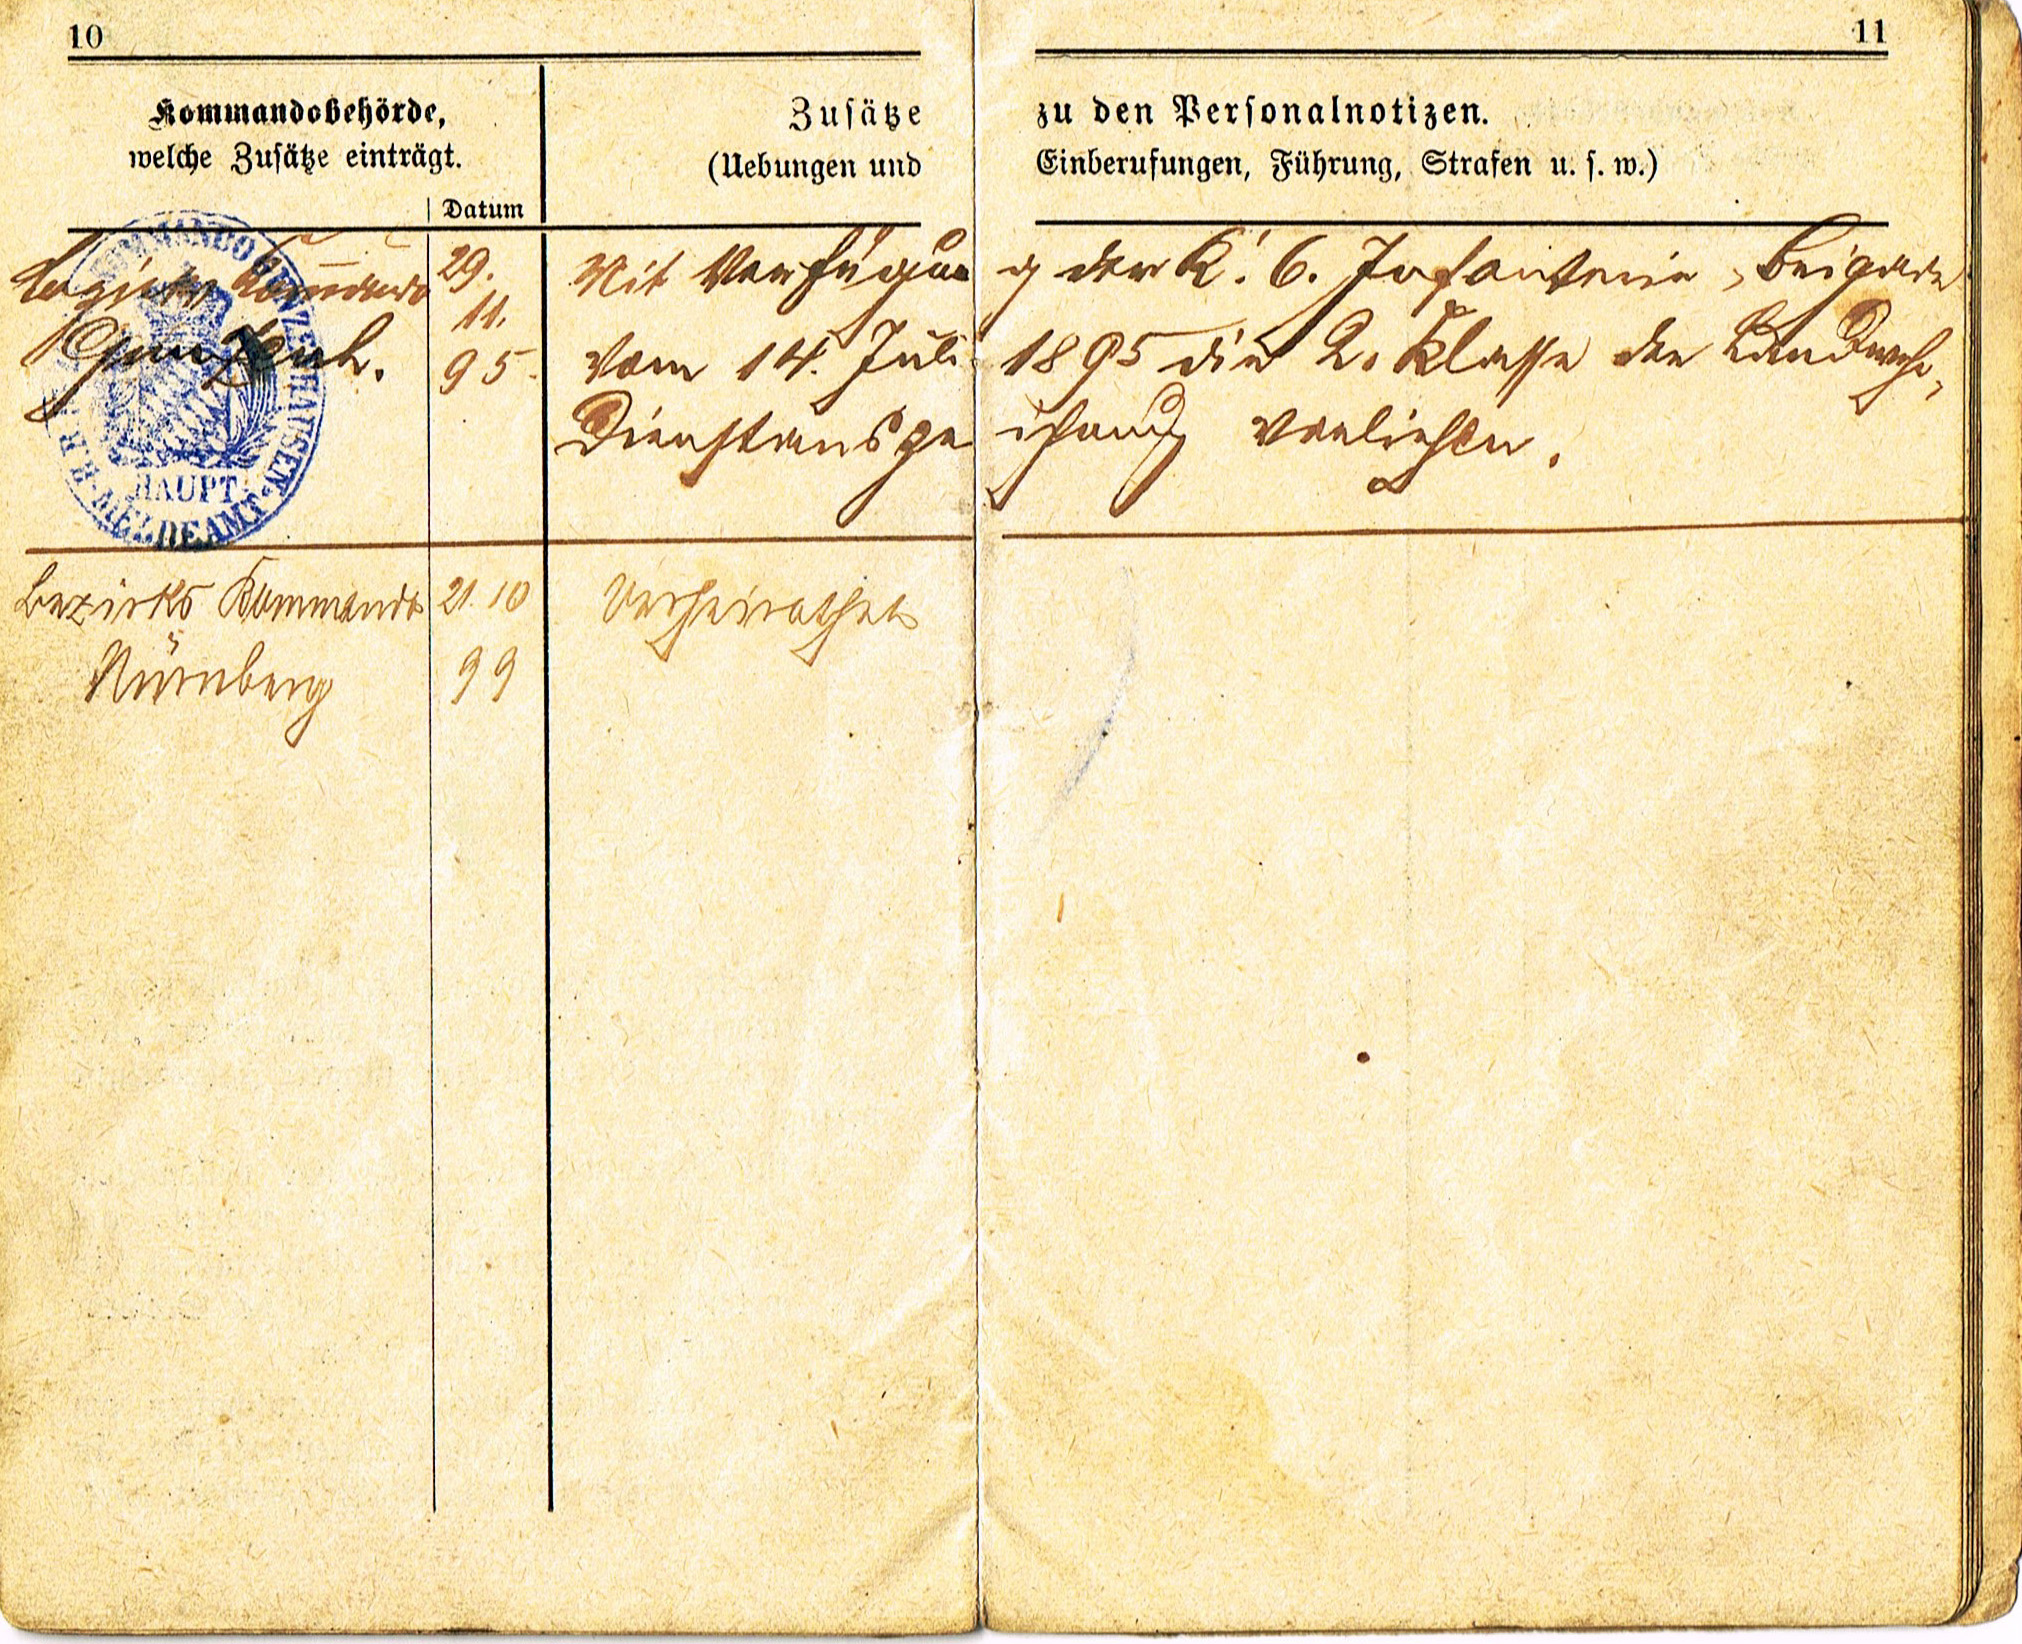 10
11
Kommandobehörde,
welche Zusätze einträgt.
Datum
Zusätze zu den Personalnotizen.
(Uebungen und Einberufungen, Führung, Strafen u. s. w.)
Bezirks Kommando
Gunzenh.
29.
11.
95.
Mit Verfügung der K. 6. Infanterie-Brigade
vom 14. Juli 1895 die 2. Klasse der Landwehr-
Dienstauszeichnung verliehen.
KOMMANDO GUNZENHAUSEN
HAUPT-
MELDEAMT
Bezirks Kommando
Nürnberg
21.10
99
Verheirathet